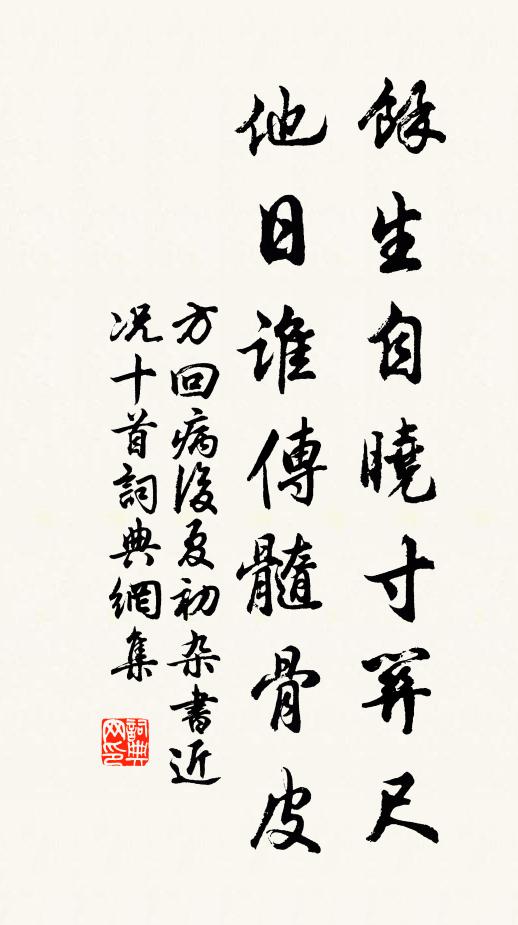 餘生自曉寸尺
他日誰傳髓骨皮
方回病後夏初杂書近
况十首詞典網集
詞典
网印